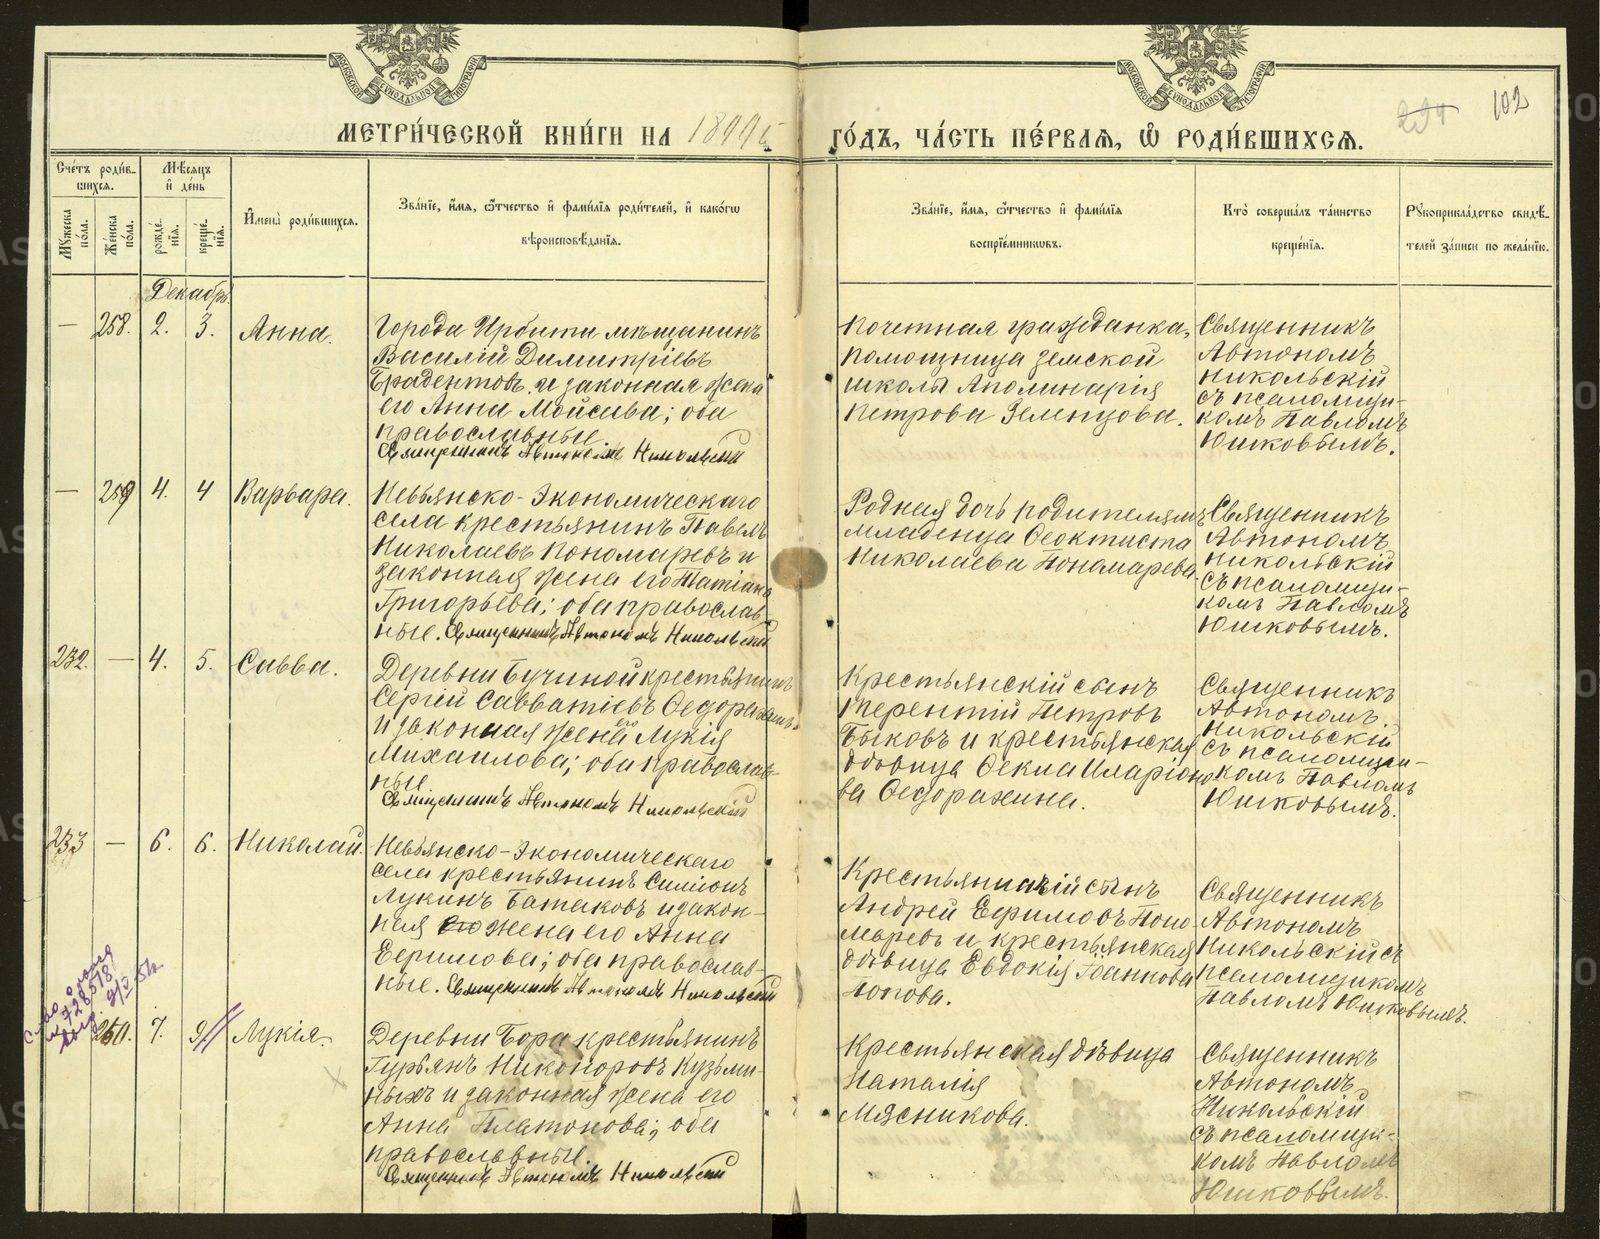 МЕТРИ́ЧЕСКОЙ КНИ́ГИ НА 1899й ГО́ДЪ, ЧА́СТЬ ПЕ́РВАѦ, Ѽ РОДИ́ВШИХСѦ.
294 102
Сче́тъ роди́в-
шихсѧ.
Мꙋ́жеска по́ла.
Же́нска по́ла.
Мѣ́сѧцъ и҆ де́нь
рожде́-
нїѧ.
креще́-
нїѧ.
И҆мена̀ роди́вшихсѧ.
Зва́нїе, и҆́мѧ, ѻ҆́тчество и҆ фами́лїѧ роди́телей, и҆ како́гѡ
вѣроисповѣ́данїѧ.
Зва́нїе, и҆́мѧ, ѻ҆́тчество и҆ фами́лїѧ
воспрїе́мниковъ.
Кто̀ соверша́лъ та́инство
креще́нїѧ.
Рꙋкоприкла́дство свидѣ́-
телей за́писи по жела́нїю.
Декабрь.
— 258. 2. 3. Анна.
Города Ирбити мѣщанинъ
Василій Димитріевъ
и законная жена
его Анна Моисеева; оба
православные.
Священникъ Автономъ Никольскій
Почетная гражданка,
помощница земской
школы Аполинарія
Петрова Зеленцова.
Священникъ
Автономъ
Никольскій
съ псаломщи-
комъ Павломъ
Юшковымъ.
— 259 4. 4 Варвара.
Невьянско-Экономическаго
села крестьянинъ Павелъ
Николаевъ Пономаревъ и
законная жена его Татіана
Григорьева; оба православ-
ные. Священникъ Автономъ Никольскій
Родная дочь родителямъ
младенца Феоктиста
Николаева Пономарева.
Священникъ
Автономъ
Никольскій
съ псаломщи-
комъ Павломъ
Юшковымъ.
232. — 4. 5. Савва.
Деревни Бучиной крестьянинъ
Сергій Савватіевъ Федорахинъ
и законная жена его Лукія
Михаилова; оба православ-
ные
Священникъ Автономъ Никольскій
Крестьянскій сынъ
Терентій Петровъ
Быковъ и крестьянская
дѣвица Фекла Иларіоно-
ва Федорахина.
Священникъ
Автономъ
Никольскій
съ псаломщи-
комъ Павломъ
Юшковымъ.
233 — 6. 6. Николай.
Невьянско-Экономическаго
села крестьянинъ Симеонъ
Лукинъ Батаковъ и закон-
ная жена его Анна
Ефимова; оба православ-
ные. Священникъ Автономъ Никольскій
Крестьянскій сынъ
Андрей Ефимовъ Поно-
маревъ и крестьянская
дѣвица Евдокія Іоаннова
Попова.
Священникъ
Автономъ
Никольскій съ
псаломщикомъ
Павломъ Юшковымъ.
260. 7. 9. Лукія.
Деревни Бора крестьянинъ
Гурьянъ Никоноровъ Кузьми-
ныхъ и законная жена его
Анна Платонова; оба
православные.
Священникъ Автономъ Никольскій
Крестьянская дѣвица
Наталія
Мясникова.
Священникъ
Автономъ
Никольскій
съ псаломщи-
комъ Павломъ
Юшковымъ.